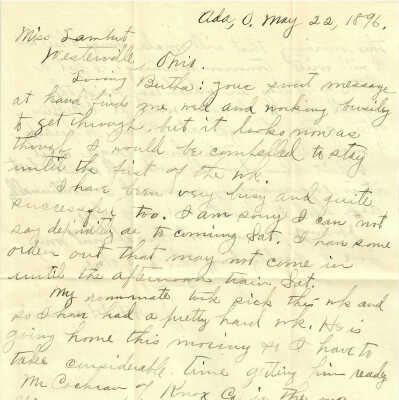 Ada, O. May 22, 1896.
Miss Lambert
Westerville, Ohio.
Loving Bertha: your sweet message
at hand finds me well and working busily
to get through, but it looks now as
though I would be compelled to stay
until the first of the wk.
I have been very busy and quite
successful too. I am sorry I can not
say definitely as to coming Sat. I have some
orders out that may not come in
until the afternoon train, Sat.
My roommate took sick this wk and
so I have had a pretty hard wk. He is
going home this morning so I have to
take considerable time getting him ready
Mr Cochran of Knox Co. is the